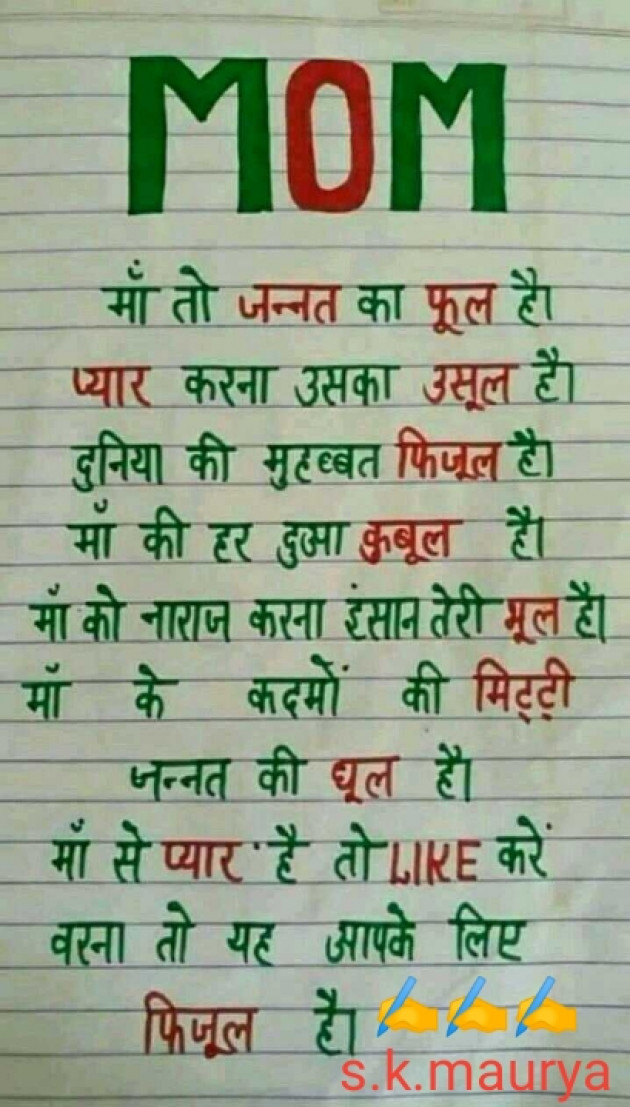 MOM
माँ तो जन्नत का फूल है।
प्यार करना उसका उसूल है।
दुनिया की मुहब्बत फिजूल है।
माँ की हर दुआ कुबूल है।
माँ को नाराज करना इंसान तेरी भूल है।
माँ के कदमों की मिट्टी
जन्नत की धूल है।
माँ से प्यार है तो LIKE करें
वरना तो यह आपके लिए
फिजूल है। ✍✍✍
s.k.maurya